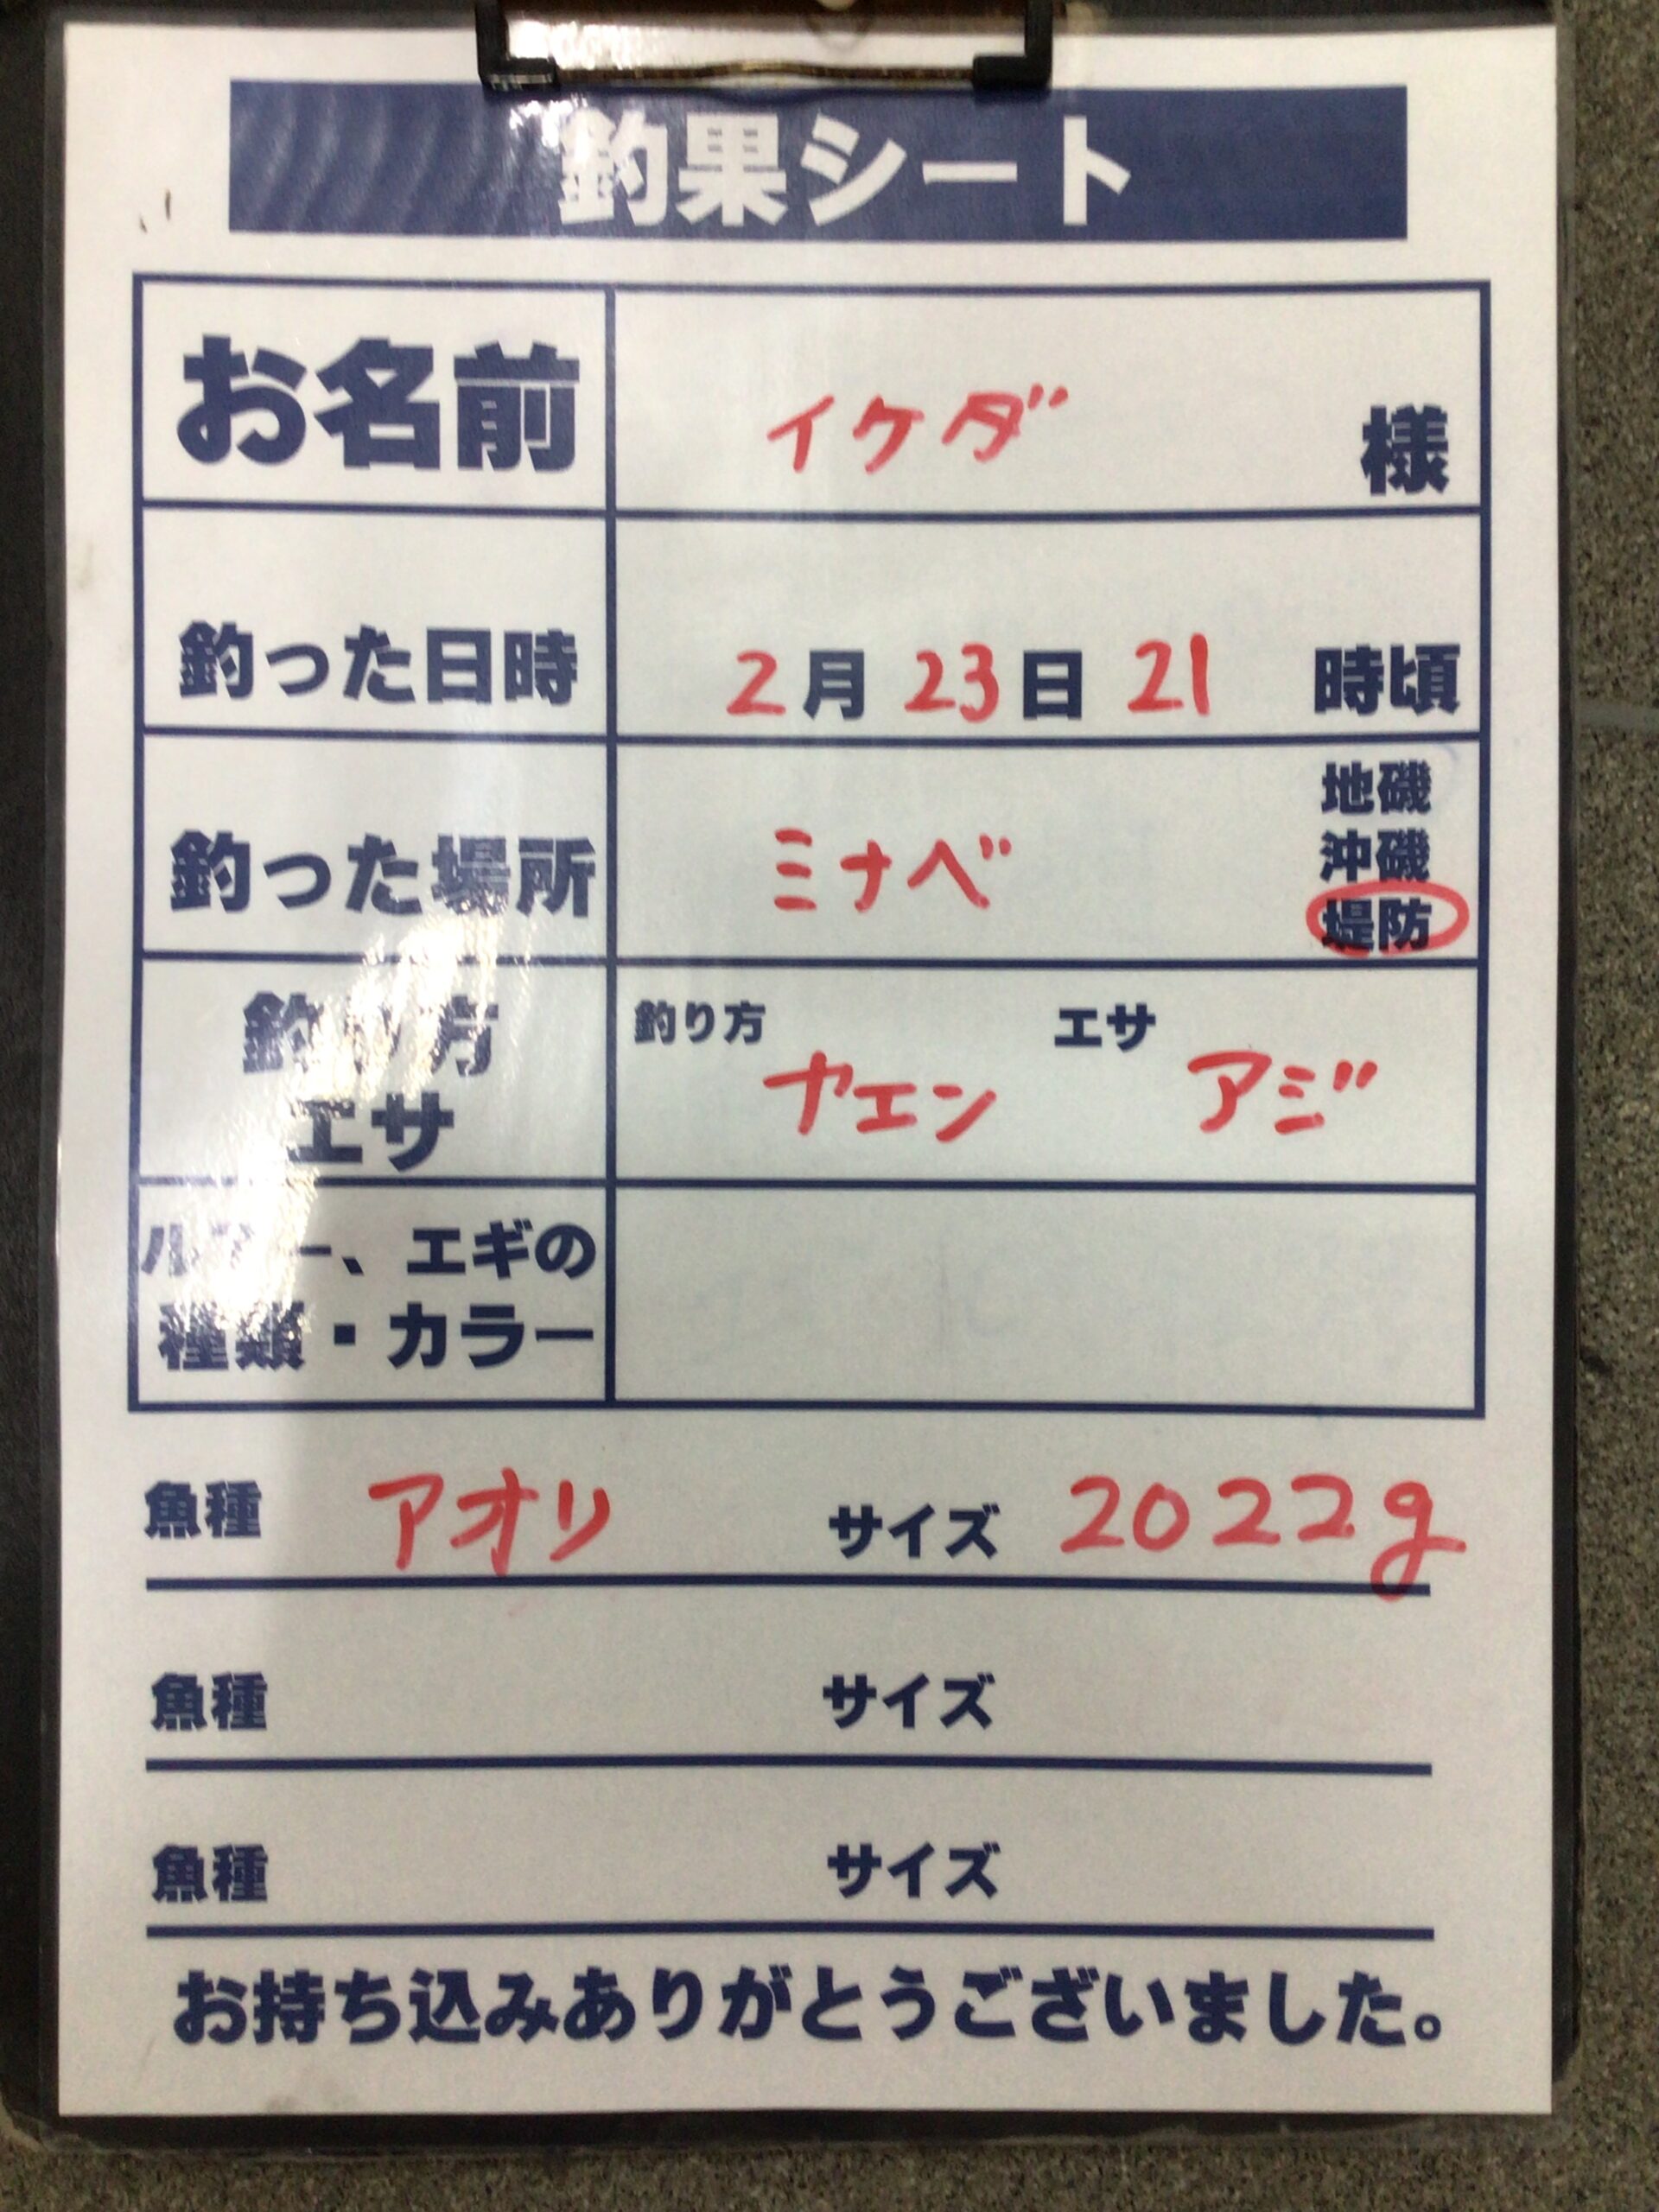 釣果シート
お名前 イケダ 様
釣った日時 2月23日 21 時頃
釣った場所 ミナベ 地磯
沖磯
堤防
釣り方 釣り方 ヤエン エサ アジ
エサ
ルアー、エギの
種類・カラー
魚種 アオリ サイズ 2022g
魚種 サイズ
魚種 サイズ
お持ち込みありがとうございました。